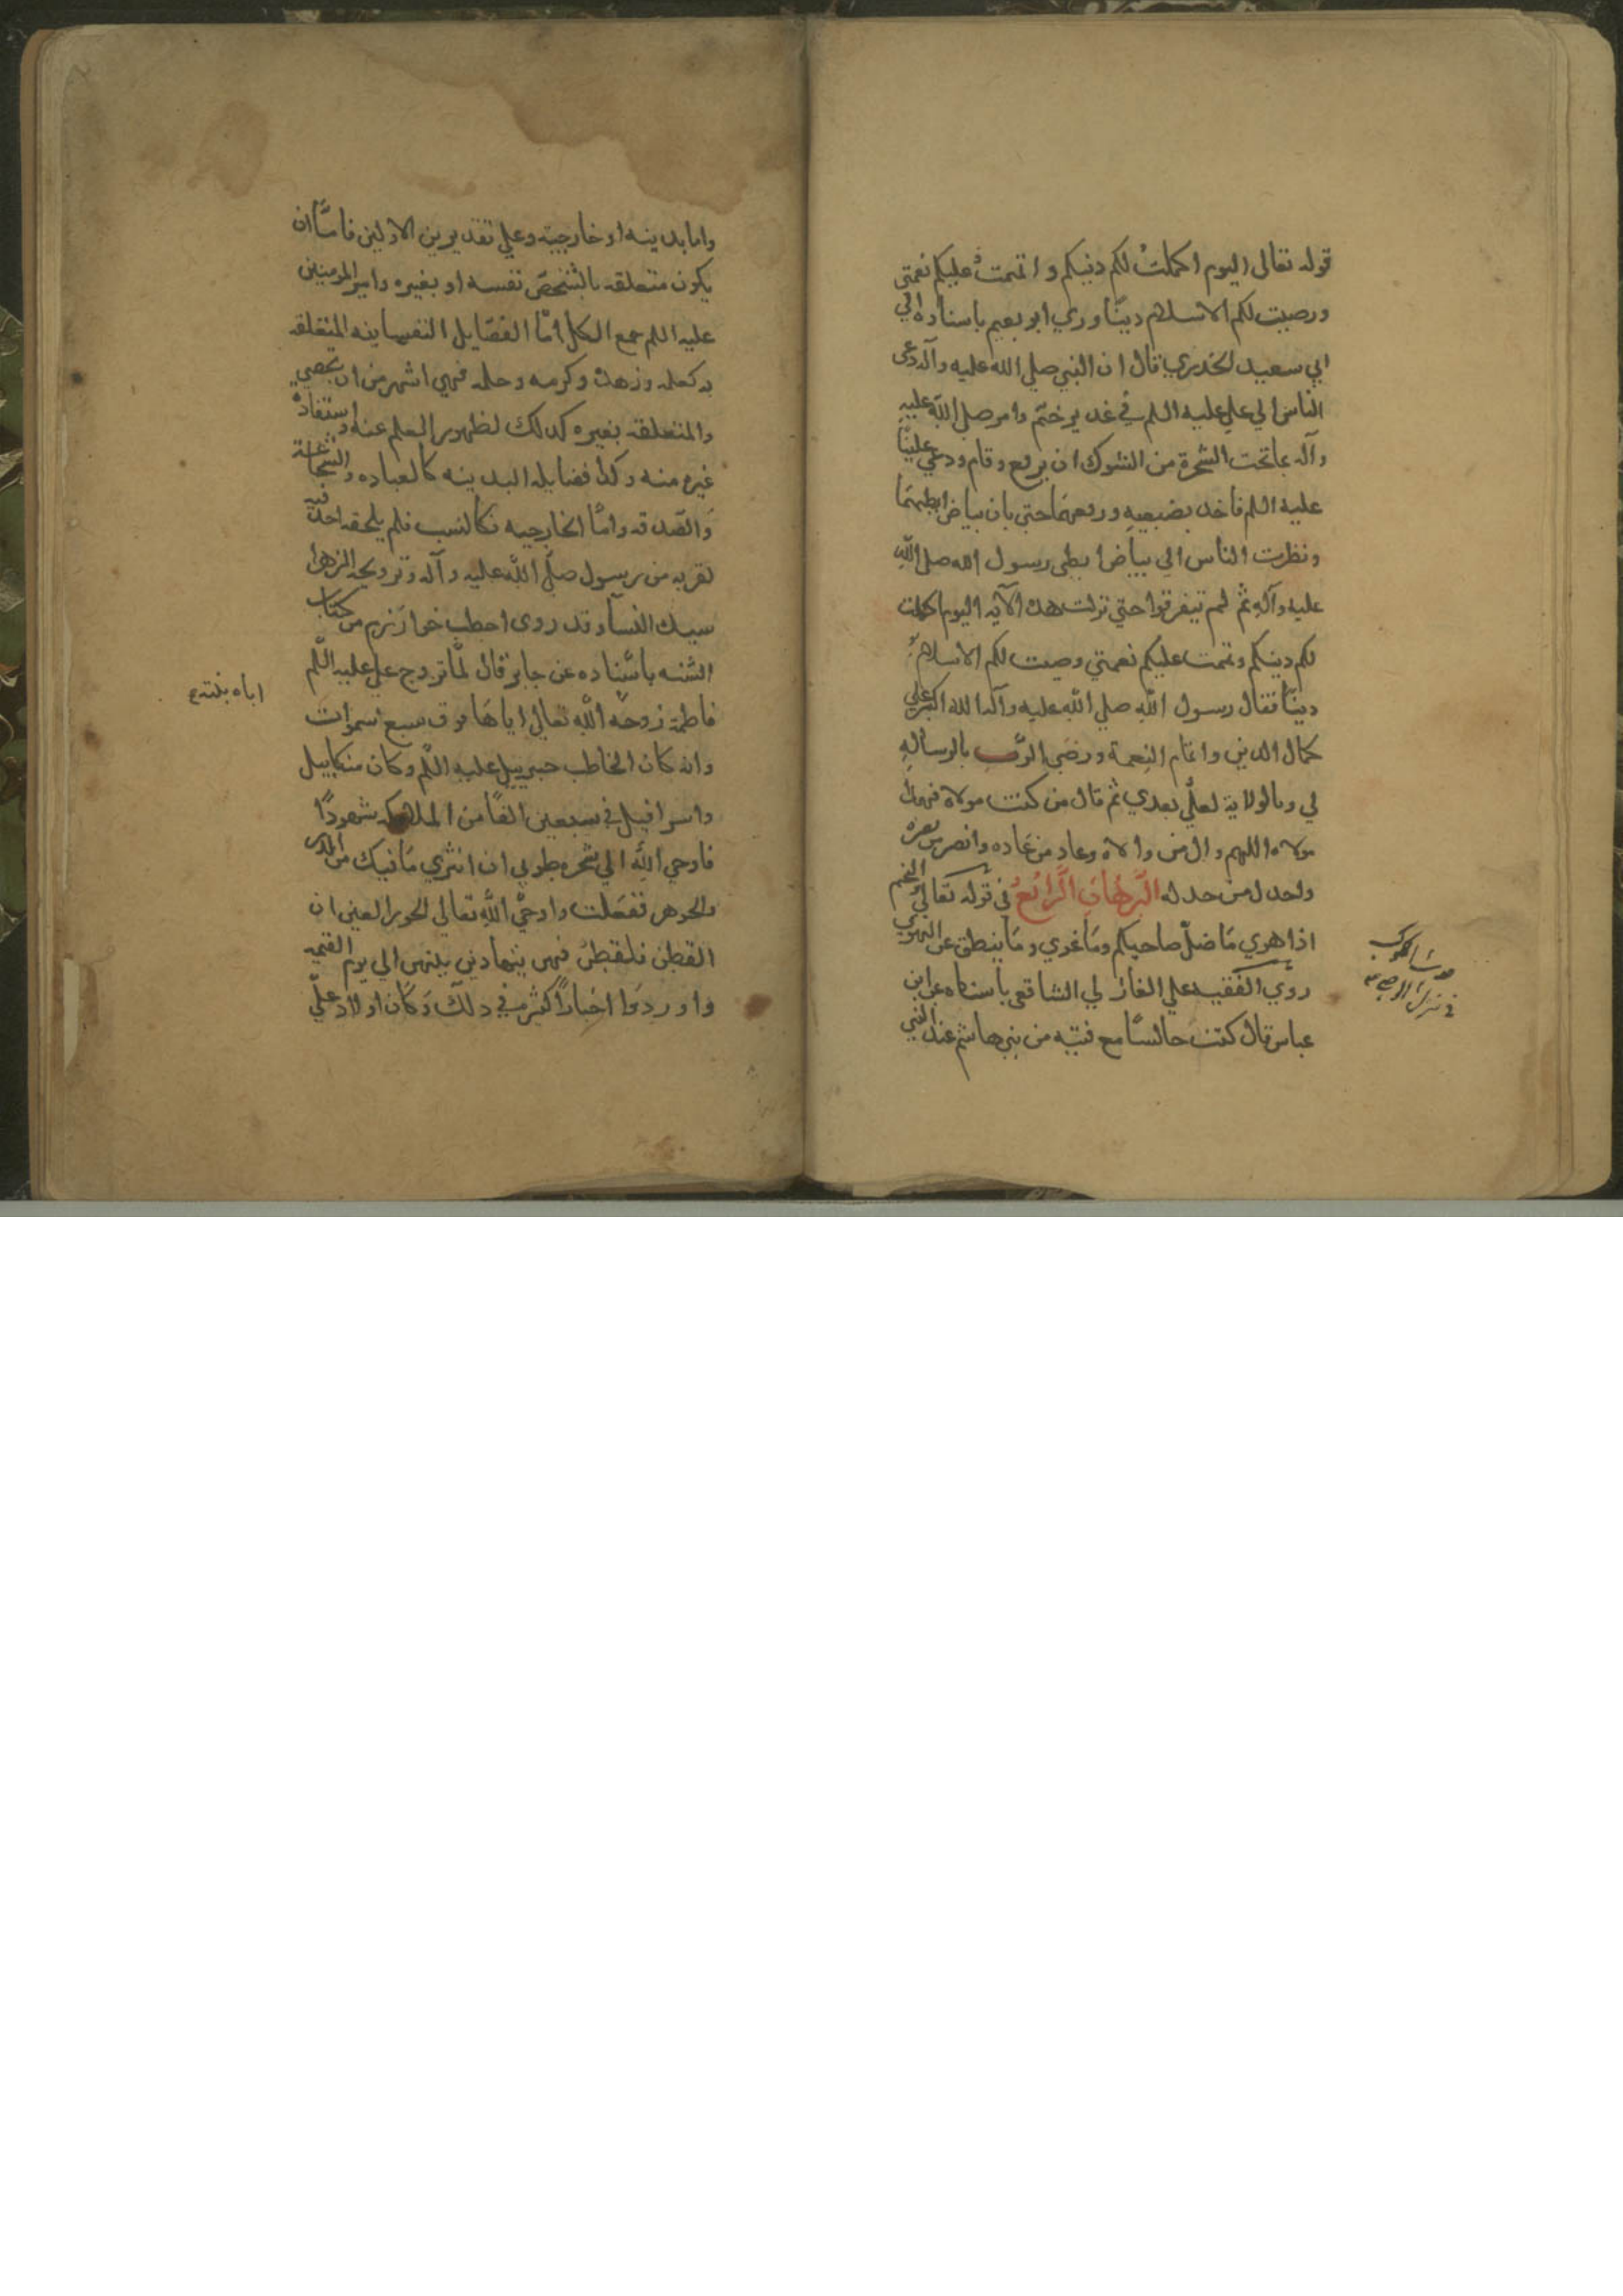 قوله تعالى اليوم اكملت لكم دينكم و اتممت عليكم نعمتى
ورضيت لكم الاسلام دينًا وروي ابو نعيم باسناده الي
ابي سعيد الخدري قال ان النبي صلي الله عليه وآله دعى
الناس الي علي عليه السلم في غدير ختم وامر صلي الله عليه
وآله بما تحت الشجرة من الشوك ان يرفع وقام ودعي عليًا
عليه السلم فاخد بضبعيه ورفعهما حتي بان بياض ابطيهما
ونظرت الناس الي بياض ابطي رسول الله صلي الله
عليه وآله ثم لم تيفرقوا حتي نزلت هذه الآية اليوم اكملت
لكم دينكم وتممت عليكم نعمتي ورضيت لكم الاسلام
دينًا فقال رسول الله صلي الله عليه وآله الله اكبر علي
كمال الدين واتمام النعمة ورضي الرب بالرسالة
لي وبالولاية لعلي بعدي ثم قال من كنت مولاه فهدا
مولاه اللهم وال من والاه وعاد من عاده وانصر من نصره
واخدل من خدله البرهان الرابع في قوله تعالي والنجم
اذا هوي ما ضل صاحبكم وما غوي وما ينطق عن الهوي
روي الفقيه علي المغازلي الشافعي باسناده عن ابن
عباس قال كنت جالسًا مع فتيه من بني هاشم عند النبي
واما بدينه او خارجية وعلي تقديرين الاولين فاما ان
يكون متعلقه بالشخص نفسه او بغيره وامير المومنين
عليه السلم جمع الكل امّا الفضايل النفسانيه المتعلقه
به كعلمه وزهده وكرمه وحلمه فهي اشهر من ان تحصي
والمتعلقه بغيره كدلك لظهور العلم عنه واستفاده
غيره منه وكدا فضايله البدينه كالعباده والشجاعة
والصدقه وامّا الخارجيه فكالنسب فلم يلحقه احد فيه
لقربه من رسول صلي الله عليه وآله وتزويجه الزهرا
سيدة النسآ وقد روى اخطب خوارزم من كتاب
السنه باسناده عن جابر قال لمّا تزوج علي عليه السلم
فاطمة زوجه الله تعالي اياها فوق سبع سموات
وانه كان الخاطب جبرييل عليه السلم وكان منكاييل
واسرافيل في سبعين الفًا من الملايكه شهودًا
فاوحي الله الي شجره طوبي ان انثري ما فيك من الدر
والجوهر ففعلت واوحي الله تعالي الحور العين ان
القطن فلقطن فهن يتهادين بينهن الي يوم القيمه
واوردوا اخبارًا كثيره في دلك وكان اولاد علي